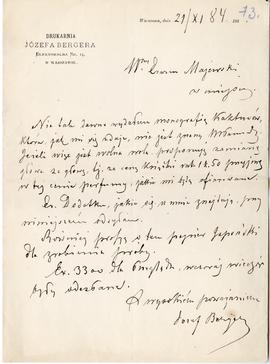 DRUKARNIA
JÓZEFA BERGERA
ELEKTORALNA No. 14,
W WARSZAWIE.
Warszawa, dnia 21/XI 84 188
73.
Wny Erazm Majewski
w miejscu
Nie tak dawno wydałem monografię Kaktusów,
która, jak mi się zdaje, nie jest znaną WPanu.
Jeżeli więc jest wolna wola proponuję zamianę
głowa za głowę, tj. za cenę książki rubli 1&50 przyjmę
w tej cenie perfumy, jakie mi były ofiarowane.
Dodatku, jakie się u mnie znajdują, po-
odsyłam.
Również proszę o ten papier Japoński
dla zrobienia próby.
Ex. 3300 dla wczoraj wieczór
były odesłane.
Z wysokiem poważaniem
Józef Berger